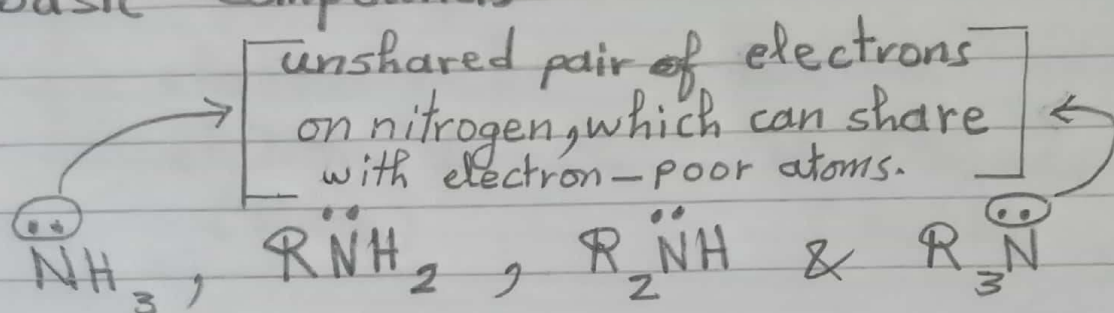 unshared pair of electrons
on nitrogen, which can share
with electron-poor atoms.
N̈H₃, RN̈H₂, R₂N̈H & R₃N̈